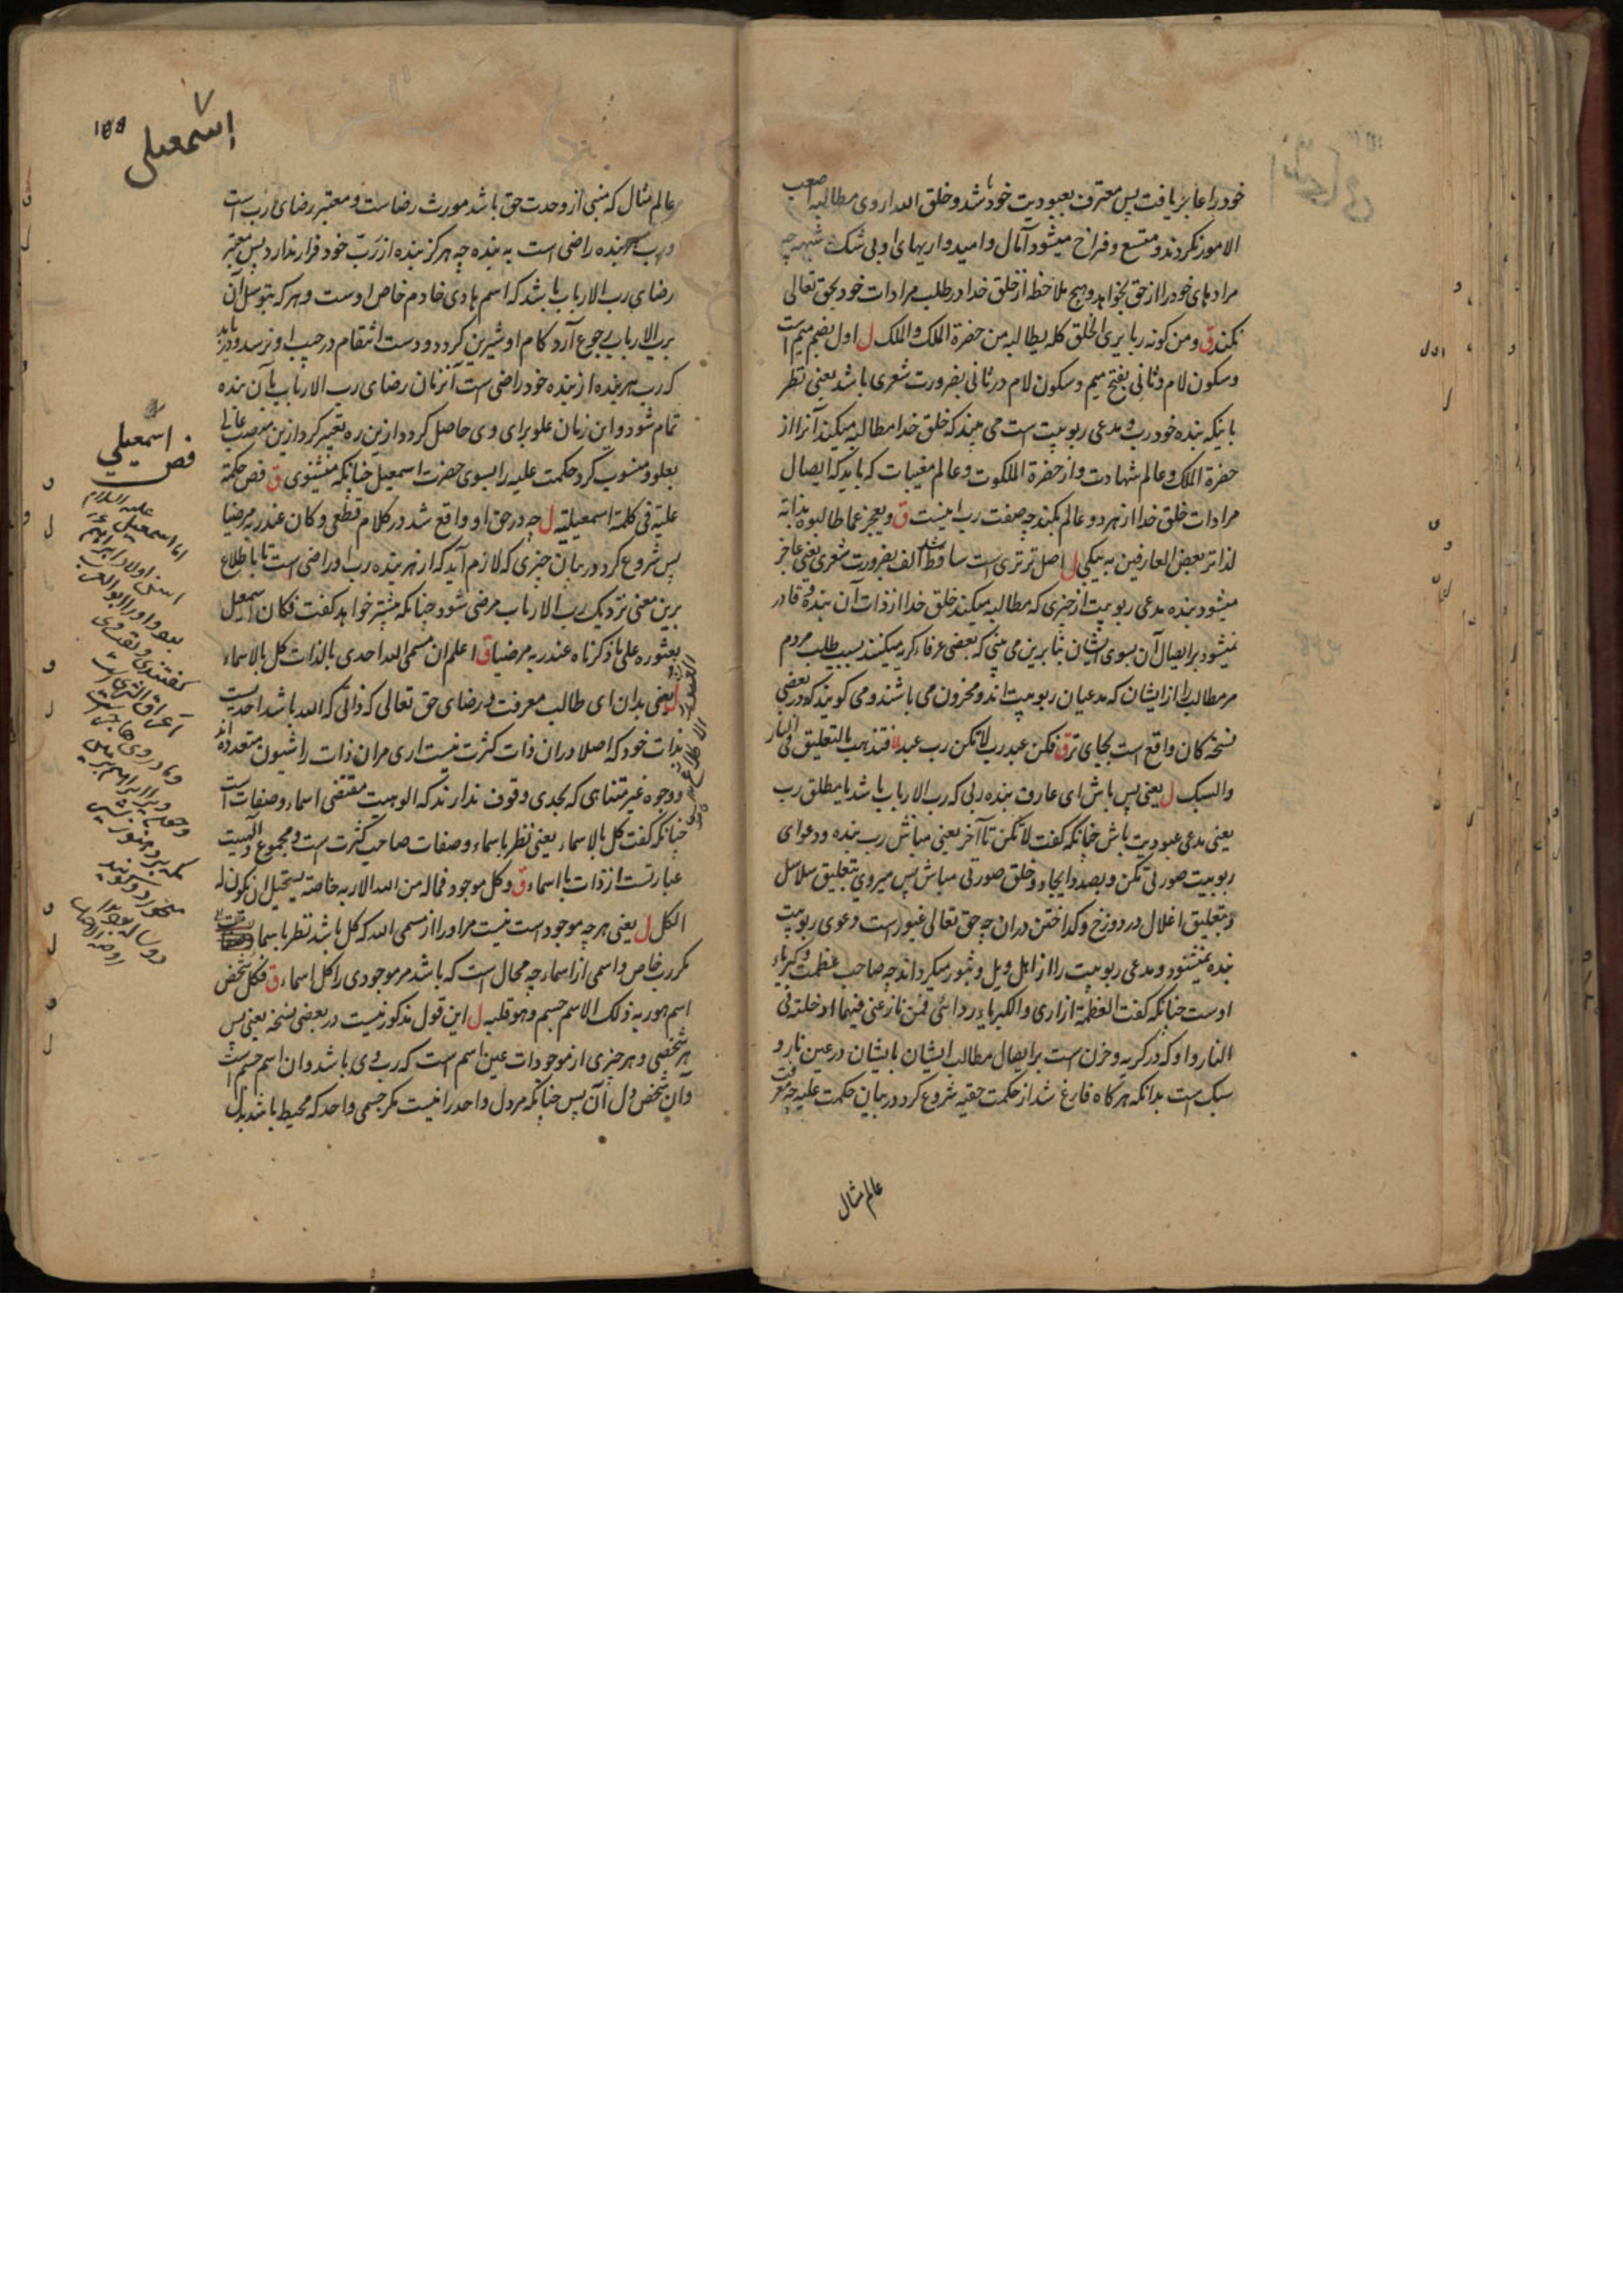 خود را عاجز یافت پس معترف بعبودیت خود باشد و خلق الله از روی مطالبه صعب
الامور نکردند و متسع و فراخ میشود آمال و امیدواریهای او بی شک شبهه چه
مرادهای خود را از حق بخواهد و هیچ ملاحظه از خلق خدا در طلب مرادات خود بحق تعالی
نکند ق ومن کونه ربا یری الخلق کله یطالبه من حضرة الملک والملک ل اول بضم میم است
و سکون لام و ثانی بفتح میم و سکون لام در ثانی بضرورت شعری باشد یعنی نظر
باینکه بنده خود رب و مدعی ربوبیت است می بیند که خلق خدا مطالبه میکنند آنرا از
حضرة الملک و عالم شهادت و از حضرة الملکوت و عالم مغیبات که باید که ایصال
مرادات خلق خدا از هر دو عالم بکند چه صفت رب اینست ق ویعجز عما طالبوه بذاته
لذا تر بعض العارفین به یبکی ل اصل تر تری است ساقط شد الف بضرورت شعری یعنی عاجز
میشود بنده مدعی ربوبیت از چیزی که مطالبه میکنند خلق خدا از ذات آن بنده و قادر
نمیشود بر ایصال آن بسوی ایشان بنابرین می بینی که بعضی عرفاء گریه میکنند بسبب طلب مردم
مر مطالب را از ایشان که مدعیان ربوبیت اند و محزون می باشند و می گویند که در بعضی
نسخه کان واقع است بجای تر ق فکن عبد رب لا تکن رب عبده فتذهب بالتعلیق فی النار
والسبک ل یعنی پس باش ای عارف بنده ربی که رب الارباب باشد یا مطلق رب
یعنی مدعی عبودیت باش چنانکه گفت لا تکن تا آخر یعنی مباش رب بنده و دعوای
ربوبیت صورتی مکن و بصدد ایجاد و خلق صورتی مباش پس میروی بتعلیق سلاسل
و بتعلیق اغلال در دوزخ و گداختن دران چه حق تعالی غیور است دعوی ربوبیت
بنده نمیشنود و مدعی ربوبیت را از اهل ویل و ثبور میگرداند چه صاحب عظمت و کبریاء
اوست چنانکه گفت العظمة ازاری والکبریاء ردائی فمن نازعنی فیهما ادخلته فی
النار و او که در گریه و حزن است بر ایصال مطالب ایشان بایشان در عین نار و
سبک است بدانکه هر گاه فارغ شد از حکمت حقیه شروع کرد در بیان حکمت علیه چه معرفت
عالم مثال
اسمعیلی
عالم مثال که مبنی از وحدت حق باشد مورث رضاست و معتبر رضای رب است
و رب بنده راضی است به بنده چه هرگز بنده از رب خود فرار ندارد پس معتبر
رضای رب الارباب باشد که اسم هادی خادم خاص اوست و هر که بتوسل آن
برب الارباب رجوع آرد کام او شیرین گردد و دست انتقام در جیب او نرسد و در یابد
که رب هر بنده از بنده خود راضی است آنزمان رضای رب الارباب بآن بنده
تمام شود و این زمان علو برای وی حاصل گردد ازین ره تعبیر کرد ازین منصب عالی
بعلو و منسوب کرد حکمت علیه را بسوی حضرت اسمعیل چنانکه میشنوی ق فص حکمة
علیة فی کلمة اسمعیلیة ل چه در حق او واقع شد در کلام قطعی وکان عند ربه مرضیا
پس شروع کرد در بیان چیزی که لازم آید که از هر بنده رب او راضی است تا باطلاع
برین معنی نزدیک رب الارباب مرضی شود چنانکه پیشتر خواهد گفت فکان اسمعیل
بعثوره علی ما ذکرناه عند ربه مرضیا ق اعلم ان مسمی الله احدی بالذات کل بالاسماء
ل یعنی بدان ای طالب معرفت و رضای حق تعالی که ذاتی که الله باشد احدیست
بذات خود که اصلا دران ذات کثرت نیست اری مران ذات را شیون متعدده اند
و وجوه غیر متناهی که بحدی وقوف ندارند که الوهیت مقتضی اسماء و صفات است
چنانکه گفت کل بالاسماء یعنی نظر باسماء و صفات صاحب کثرت است و مجموع الهیت
عبارتست از ذات با اسماء ق وکل موجود فماله من الله الا ربه خاصة یستحیل ان یکون له
الکل ل یعنی هر چه موجود است نیست مر او را از مسمی الله که کل باشد نظر باسما
مگر رب خاص و اسمی از اسماء چه محال است که باشد مر موجودی را کل اسماء ق فکل شخص
اسم هو ربه ذلک الاسم جسم وهو قلبه ل این قول مذکور نیست در بعضی نسخه یعنی پس
هر شخصی و هر چیزی از موجودات عین اسم است که رب وی باشد و ان اسم جسم است
و آن شخص دل آن پس چنانکه مر دل واحد را نیست مگر جسمی واحد که محیط باشد بدل
فص اسمعیلی
علیه السلام
اما اسمعیل